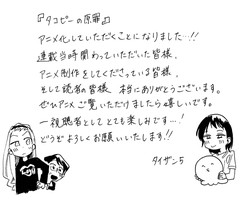 『タコピーの原罪』
アニメ化していただくことになりました…!!
連載当時関わっていただいた皆様、
アニメ制作をしてくださっている皆様、
そして読者の皆様 本当にありがとうございます。
ぜひアニメご覧いただけましたら嬉しいです。
一視聴者としてとても楽しみです…!
どうぞよろしくお願いいたします!!
タイザン5